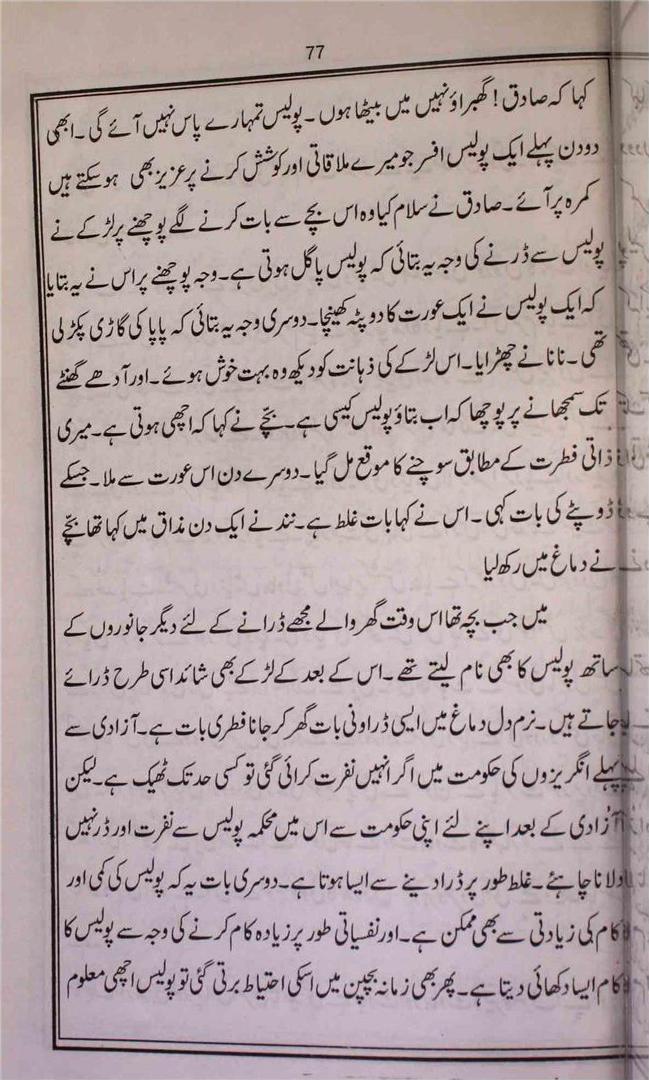 77
کہا کہ صادق! گھبراؤ نہیں میں بیٹھا ہوں۔ پولیس تمہارے پاس نہیں آئے گی۔ ابھی
دو دن پہلے ایک پولیس افسر جو میرے ملاقاتی اور کوشش کرنے پر عزیز بھی ہو سکتے ہیں
کمرہ پر آئے۔ صادق نے سلام کیا وہ اس بچے سے بات کرنے لگے پوچھنے پر لڑکے نے
پولیس سے ڈرنے کی وجہ یہ بتائی کہ پولیس پاگل ہوتی ہے۔ وجہ پوچھنے پر اس نے یہ بتایا
کہ ایک پولیس نے ایک عورت کا دوپٹہ کھینچا۔ دوسری وجہ یہ بتائی کہ پاپا کی گاڑی پکڑ لی
تھی۔ نانا نے چھڑایا۔ اس لڑکے کی ذہانت کو دیکھ وہ بہت خوش ہوئے۔ اور آدھے گھنٹے
تک سمجھانے پر پوچھا کہ اب بتاؤ پولیس کیسی ہے۔ بچّے نے کہا کہ اچھی ہوتی ہے۔ میری
ذاتی فطرت کے مطابق سوچنے کا موقع مل گیا۔ دوسرے دن اس عورت سے ملا۔ جسکے
ڈوپٹے کی بات کہی۔ اس نے کہا بات غلط ہے۔ نند نے ایک دن مذاق میں کہا تھا بچّے
نے دماغ میں رکھ لیا
میں جب بچہ تھا اس وقت گھر والے مجھے ڈرانے کے لئے دیگر جانوروں کے
ساتھ پولیس کا بھی نام لیتے تھے۔ اس کے بعد کے لڑکے بھی شائد اسی طرح ڈرائے
جاتے ہیں۔ نرم دل دماغ میں ایسی ڈراونی بات گھر کر جانا فطری بات ہے۔ آزادی سے
پہلے انگریزوں کی حکومت میں اگر انہیں نفرت کرائی گئی تو کسی حد تک ٹھیک ہے۔ لیکن
آزادی کے بعد اپنے لئے اپنی حکومت سے اس میں محکمہ پولیس سے نفرت اور ڈر نہیں
دلانا چاہئے۔ غلط طور پر ڈرا دینے سے ایسا ہوتا ہے۔ دوسری بات یہ کہ پولیس کی کمی اور
کام کی زیادتی سے بھی ممکن ہے۔ اور نفسیاتی طور پر زیادہ کام کرنے کی وجہ سے پولیس کا
کام ایسا دکھائی دیتا ہے۔ پھر بھی زمانہ بچپن میں اسکی احتیاط برتی گئی تو پولیس اچھی معلوم